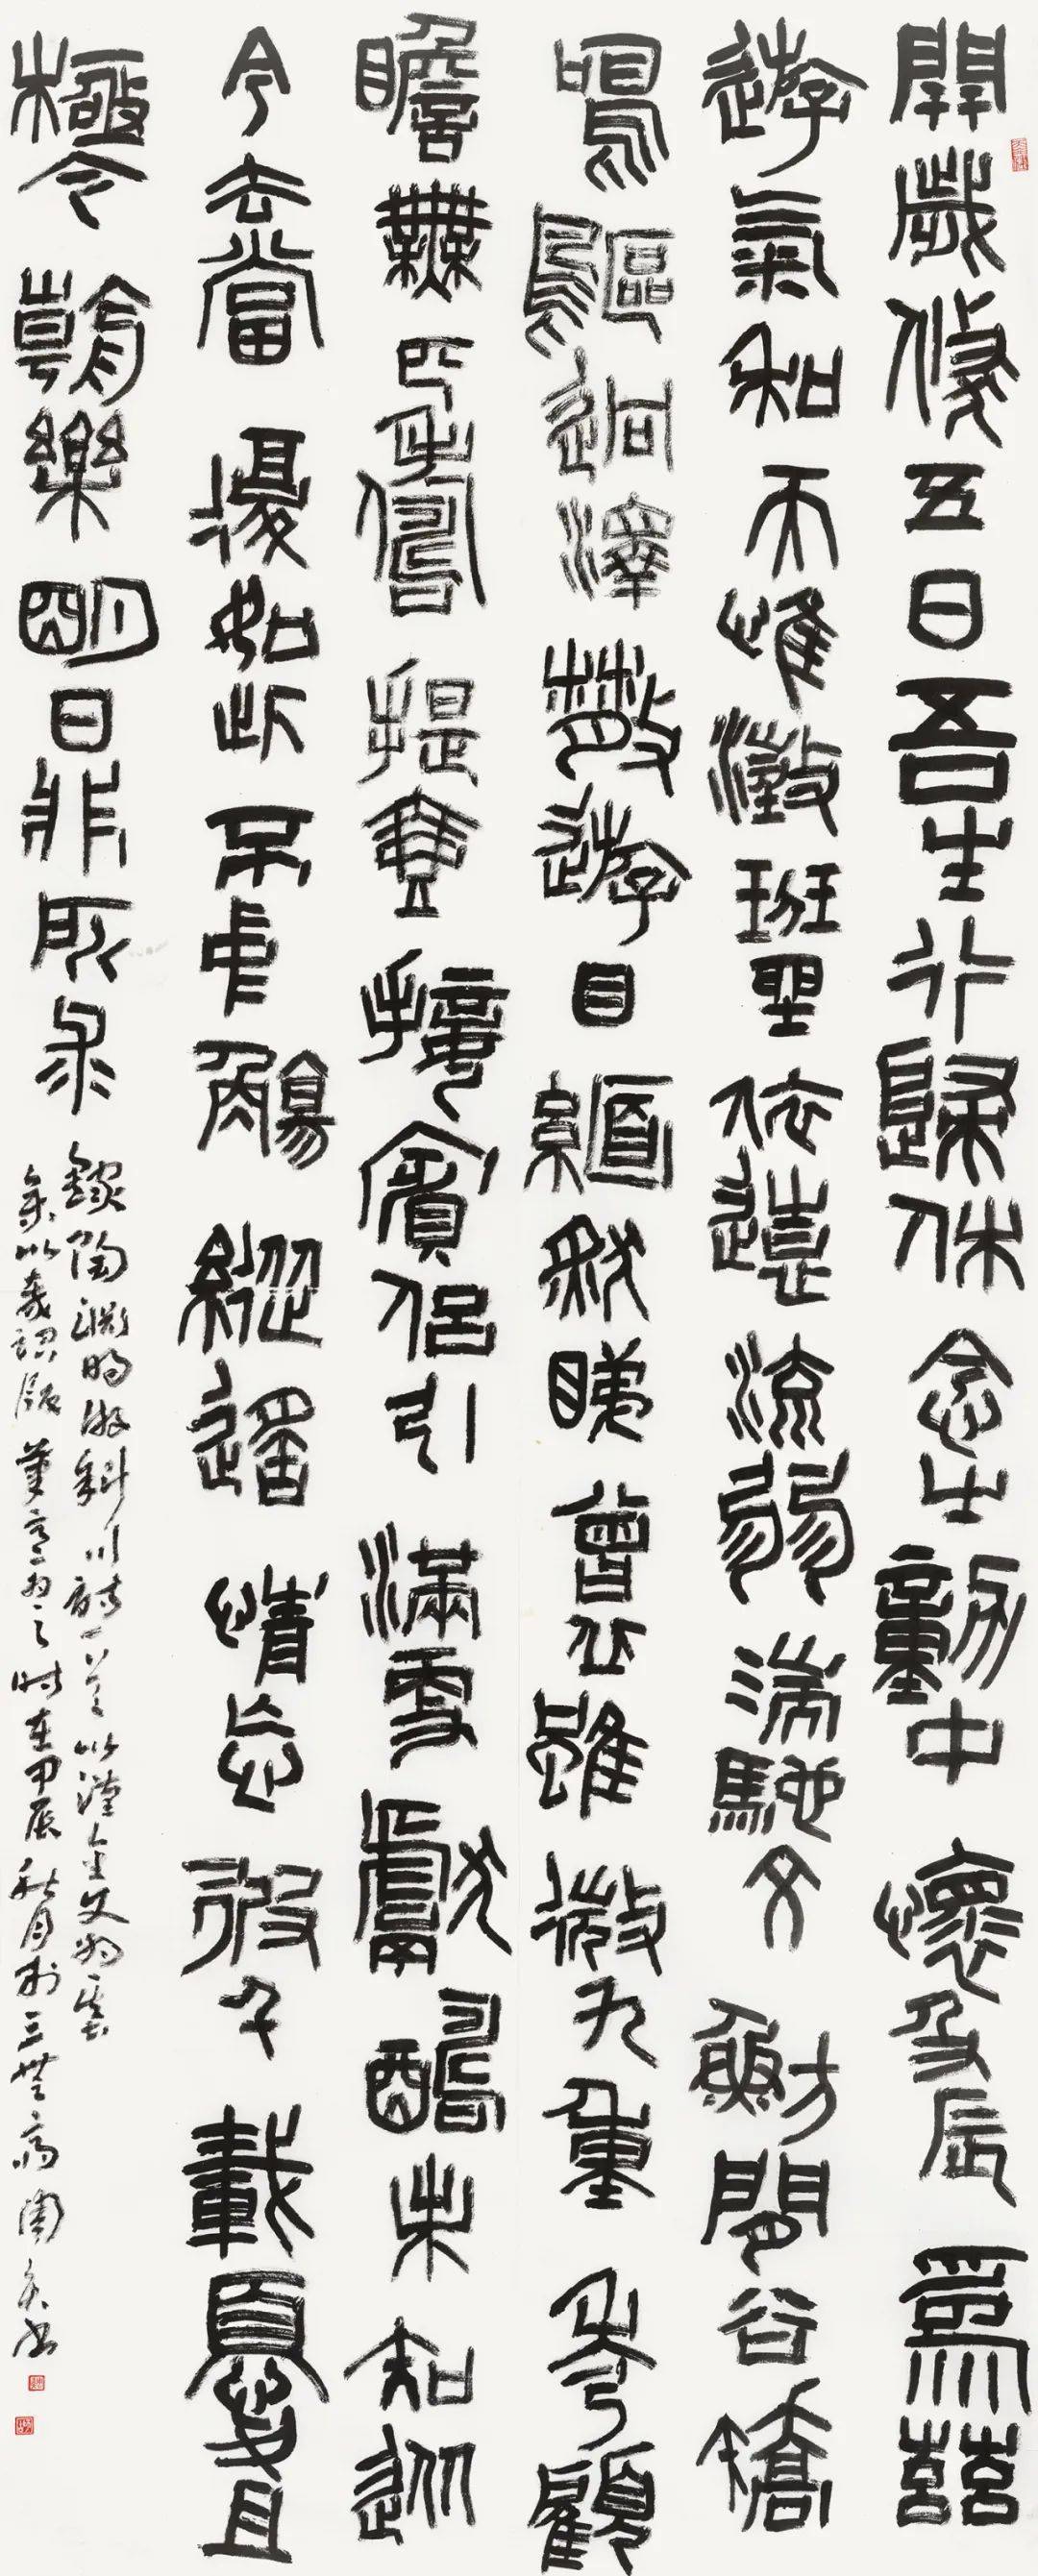 開歲倏五日吾生行歸休念之動中懷及辰爲茲
遊氣和天惟澂班坐依遠流弱湍馳文魴閒谷矯
鳴驅迥澤散遊目緬然睇曾丘雖微九重秀顧
瞻無匹儔提壺接賓侶引滿更獻酬未知從
今去當復如此不中觴縱遙情忘彼千載憂且
極今朝樂明日非所求
錄陶淵明游斜川詩一首以漢金文為基
參以秦詔版筆意為之時在甲辰秋月於三